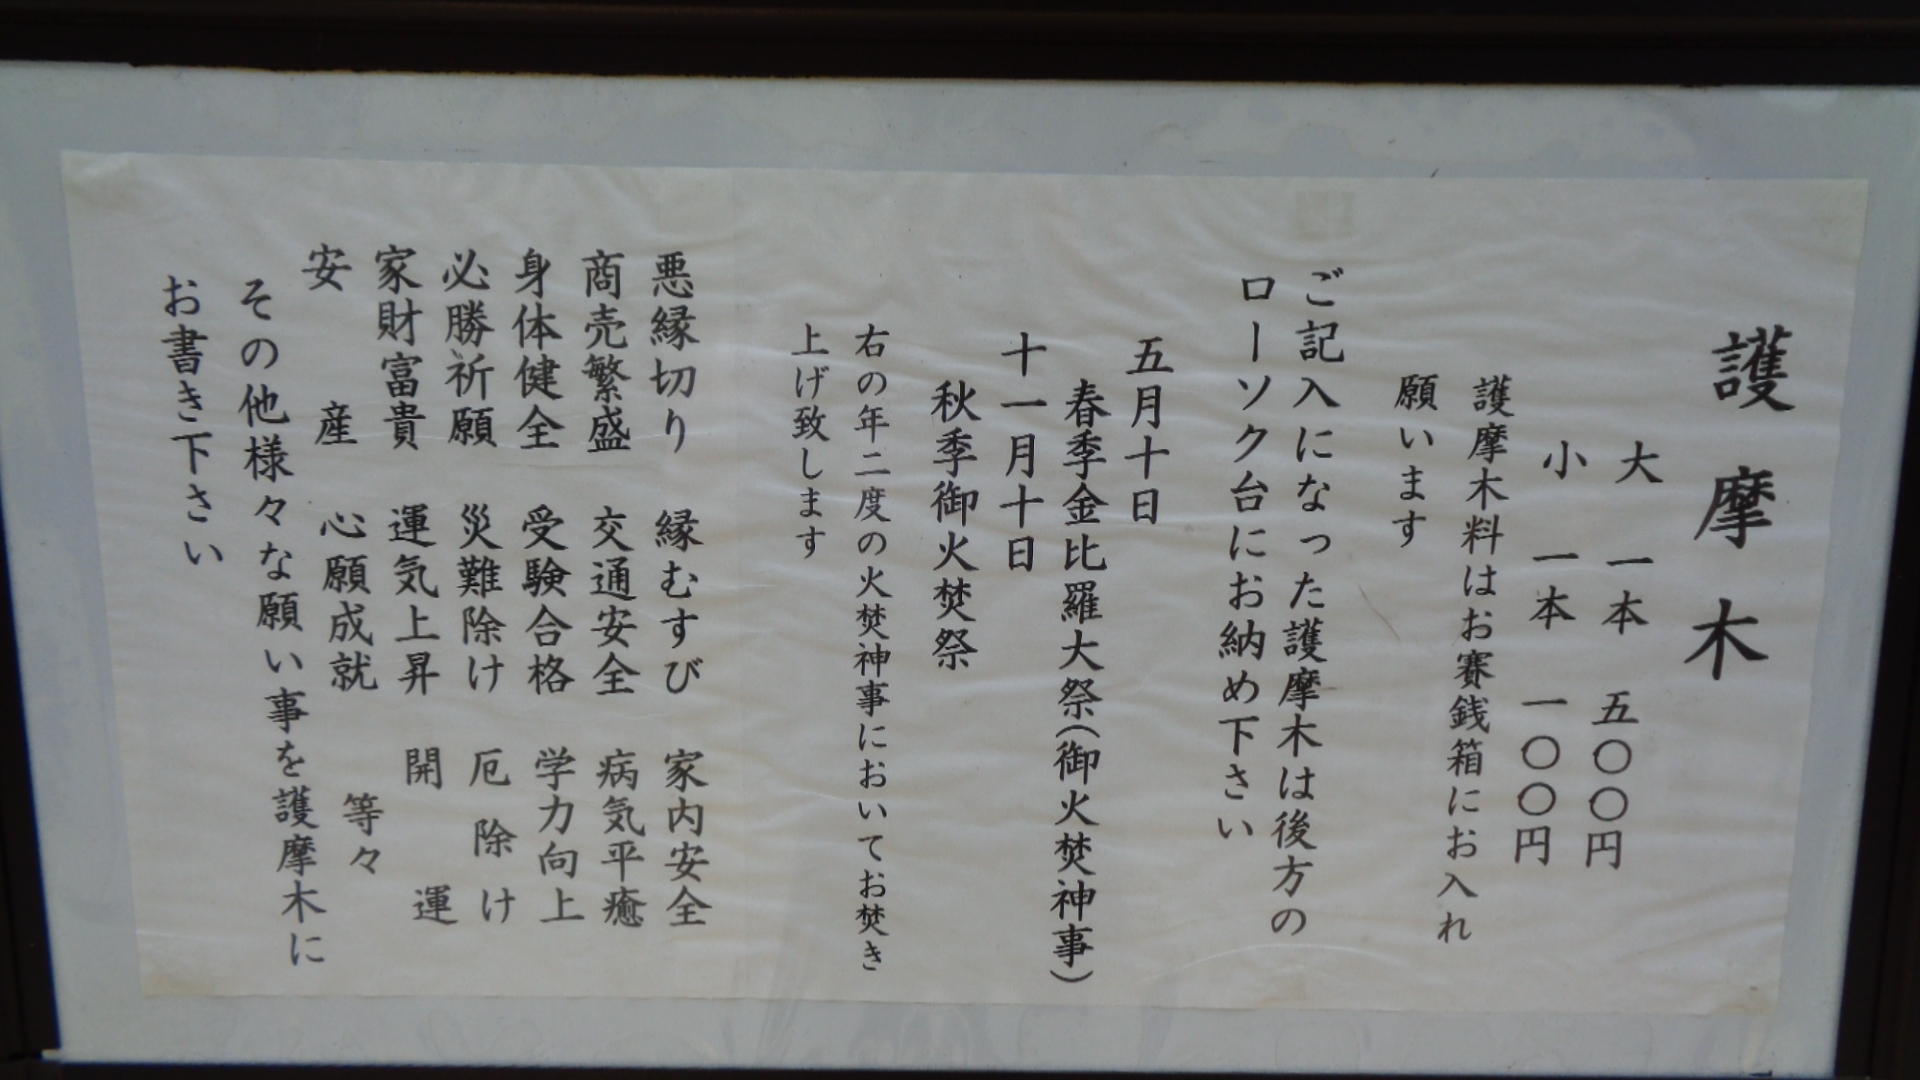 護摩木
大 一本 五〇〇円
小 一本 一〇〇円
護摩木料はお賽銭箱にお入れ
願います
ご記入になった護摩木は後方の
ローソク台にお納め下さい
五月十日
春季金比羅大祭(御火焚神事)
十一月十日
秋季御火焚祭
右の年二度の火焚神事においてお焚き
上げ致します
悪縁切り 縁むすび 家内安全
商売繁盛 交通安全 病気平癒
身体健全 受験合格 学力向上
必勝祈願 災難除け 厄除け
家財富貴 運気上昇 開運
安産 心願成就 等々
その他様々な願い事を護摩木に
お書き下さい